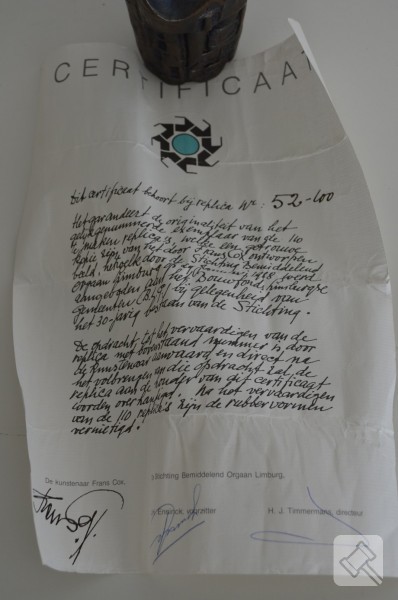 CERTIFICAAT
Dit certificaat behoort bij replica Nr: 52-100
Het garandeert de originaliteit van het
gelijkgenummerde exemplaar van de 110
te maken replica's, welke een getrouwe
kopie zijn van het door Frans Cox ontworpen
beeld, hetgeen door de Stichting Bemiddelend
Orgaan Limburg op 1988 werd
aangeboden aan het Bouwfonds Limburgse
Gemeenten (B.L.G.) bij gelegenheid van
het 30-jarig bestaan van de Stichting.
De opdracht tot het vervaardigen van de
replica met bovenstaand nummer is door
de kunstenaar aanvaard en direct na
het volbrengen van die opdracht zal de
replica aan de houder van dit certificaat
worden overhandigd. Na het vervaardigen
van de 110 replica's zijn de rubbervormen
vernietigd.
De kunstenaar Frans Cox,
Stichting Bemiddelend Orgaan Limburg,
voorzitter
H. J. Timmermans, direkteur